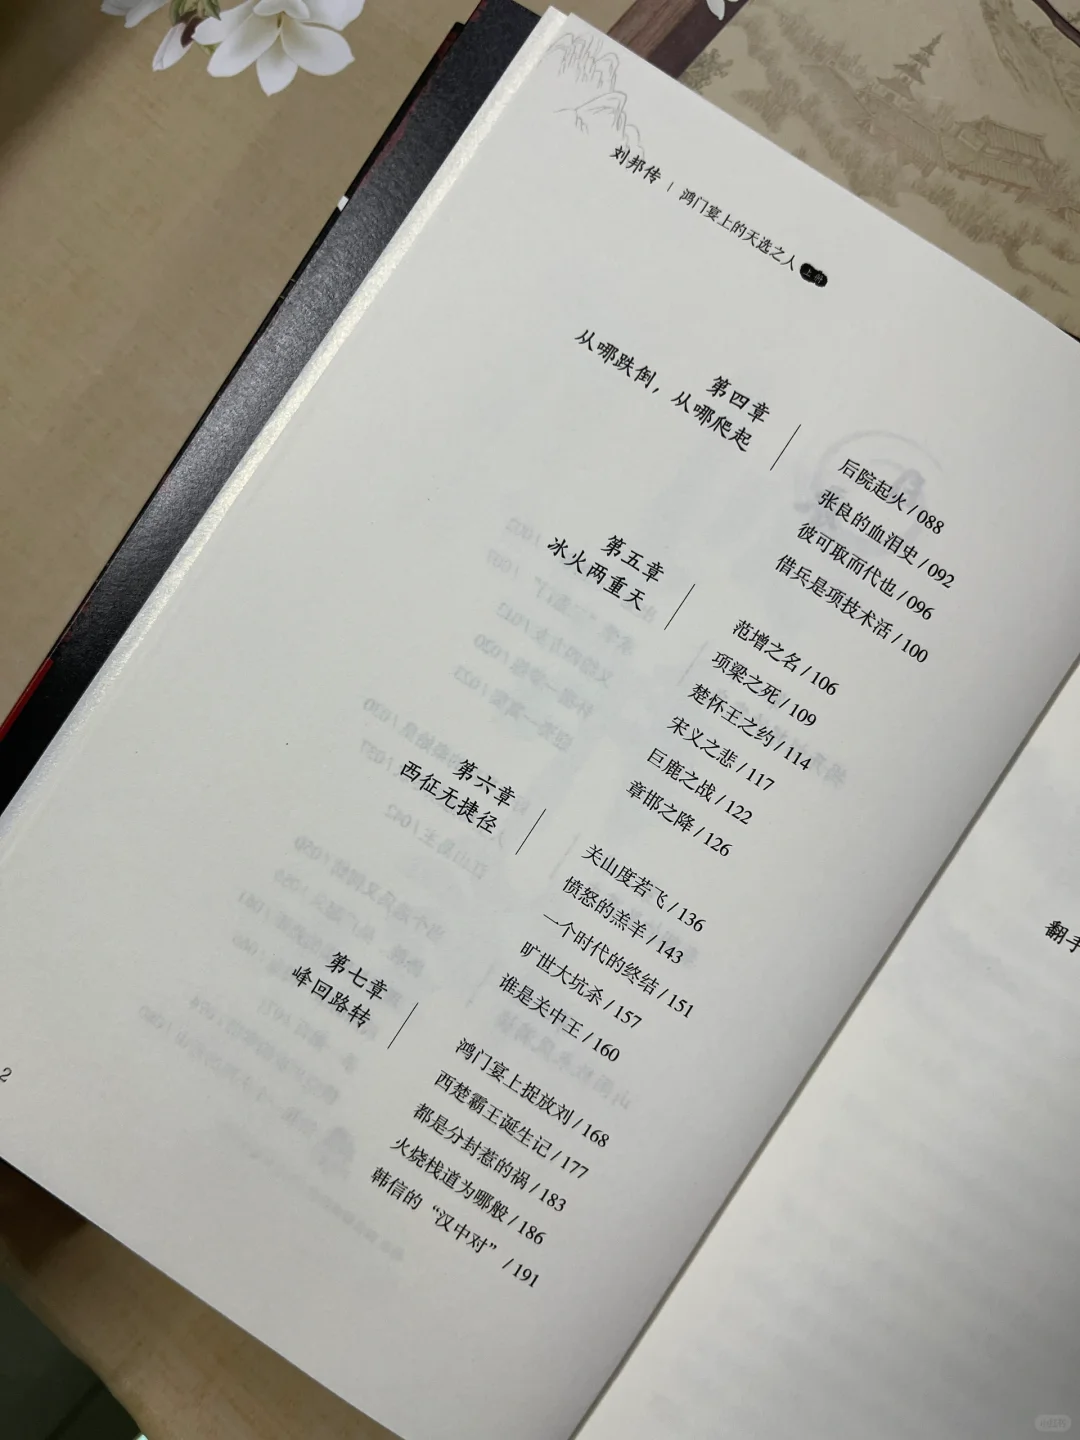 刘邦传 | 鸿门宴上的天选之人 上册
第四章
从哪跌倒，从哪爬起
后院起火 / 088
张良的血泪史 / 092
彼可取而代也 / 096
借兵是项技术活 / 100
第五章
冰火两重天
范增之名 / 106
项梁之死 / 109
楚怀王之约 / 114
宋义之悲 / 117
巨鹿之战 / 122
章邯之降 / 126
第六章
西征无捷径
关山度若飞 / 136
愤怒的羔羊 / 143
一个时代的终结 / 151
旷世大坑杀 / 157
谁是关中王 / 160
第七章
峰回路转
鸿门宴上捉放刘 / 168
西楚霸王诞生记 / 177
都是分封惹的祸 / 183
火烧栈道为哪般 / 186
韩信的“汉中对” / 191
2
翻手